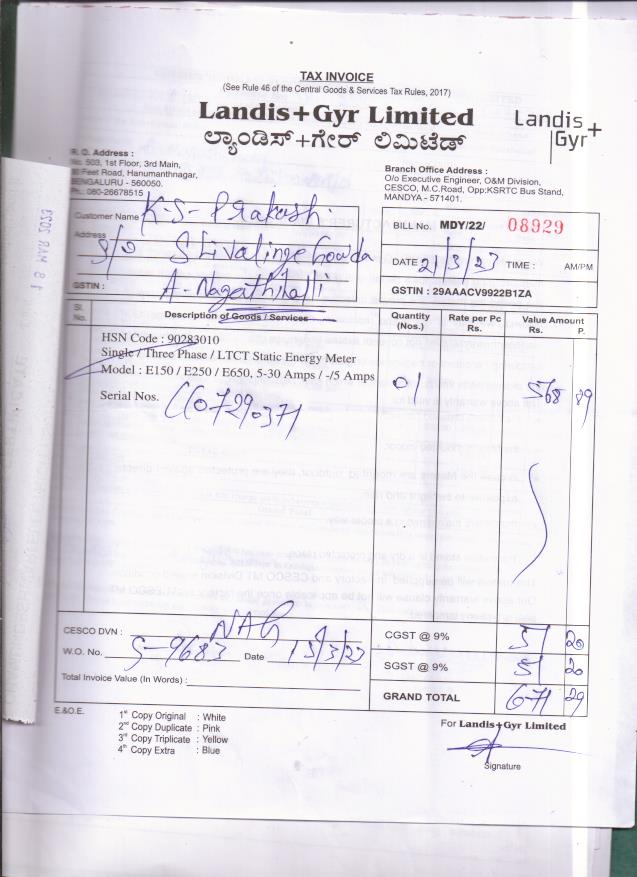 TAX INVOICE
(See Rule 46 of the Central Goods & Services Tax Rules, 2017)
Landis+Gyr Limited
ಲ್ಯಾಂಡಿಸ್+ಗೇರ್ ಲಿಮಿಟೆಡ್
Landis+
Gyr
R. O. Address :
No. 503, 1st Floor, 3rd Main,
Feet Road, Hanumanthnagar,
BENGALURU - 560050.
Ph.: 080-26678515
Branch Office Address :
O/o Executive Engineer, O&M Division,
CESCO, M.C.Road, Opp:KSRTC Bus Stand,
MANDYA - 571401.
18 MAR 2023
Customer Name K-S- Prakash
Address S/o Shivalinge Gowda
GSTIN : A- Nagathihalli
BILL No. MDY/22/ 08929
DATE 21/3/23 TIME : AM/PM
GSTIN : 29AAACV9922B1ZA
Sl. No. Description of Goods / Services Quantity (Nos.) Rate per Pc Rs. Value Amount Rs. P.
HSN Code : 90283010
Single / Three Phase / LTCT Static Energy Meter
Model : E150 / E250 / E650, 5-30 Amps / -/5 Amps 01 568 89
Serial Nos. CC07290371
CESCO DVN : NAG
W.O. No. S-9683 Date 15/3/23
Total Invoice Value (In Words) :
CGST @ 9% 51 20
SGST @ 9% 51 20
GRAND TOTAL 671 29
E.&O.E.
1st Copy Original : White
2nd Copy Duplicate : Pink
3rd Copy Triplicate : Yellow
4th Copy Extra : Blue
For Landis+Gyr Limited
Signature